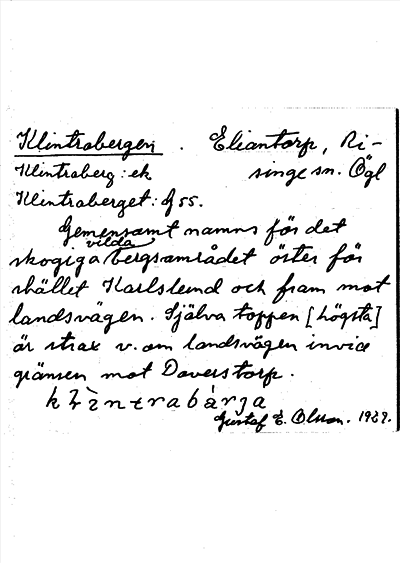 Klintrabergen. Eliantorp, Ri-
Klintraberg: ek singe sn. Ögl
Klintraberget: G 55.
Gemensamt namn för det
vilda
skogiga bergsområdet öster för
stället Karlslund och fram mot
landsvägen. Själva toppen [högsta]
är strax v. om landsvägen invid
gränsen mot Daverstorp.
klìntrabárja
Gustaf E. Olsson. 1929.